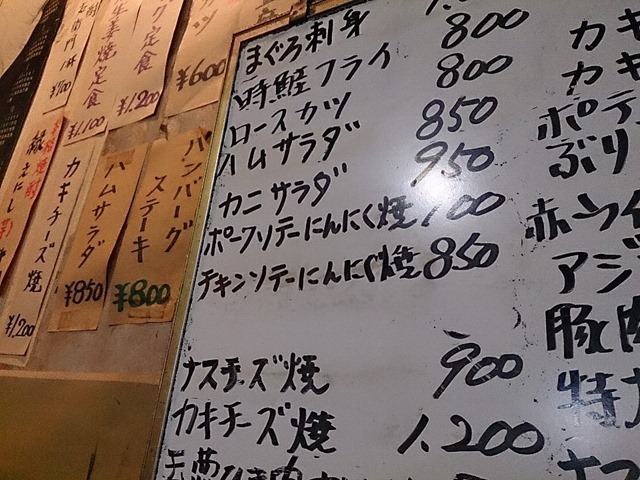 ¥700
生姜焼定食
¥1,100
定食
¥1,200
¥600
カキチーズ焼
¥1,200
ハムサラダ
¥850
ハンバーグ
ステーキ
¥800
まぐろ刺身
フライ 800
ロースカツ 800
ハムサラダ 850
カニサラダ 950
ポークソテーにんにく焼
チキンソテーにんにく焼 850
ナスチーズ焼 900
カキチーズ焼 1,200
カキ
カキ
ポテ
ぶり
赤ウイ
アジ
豚肉
ナス